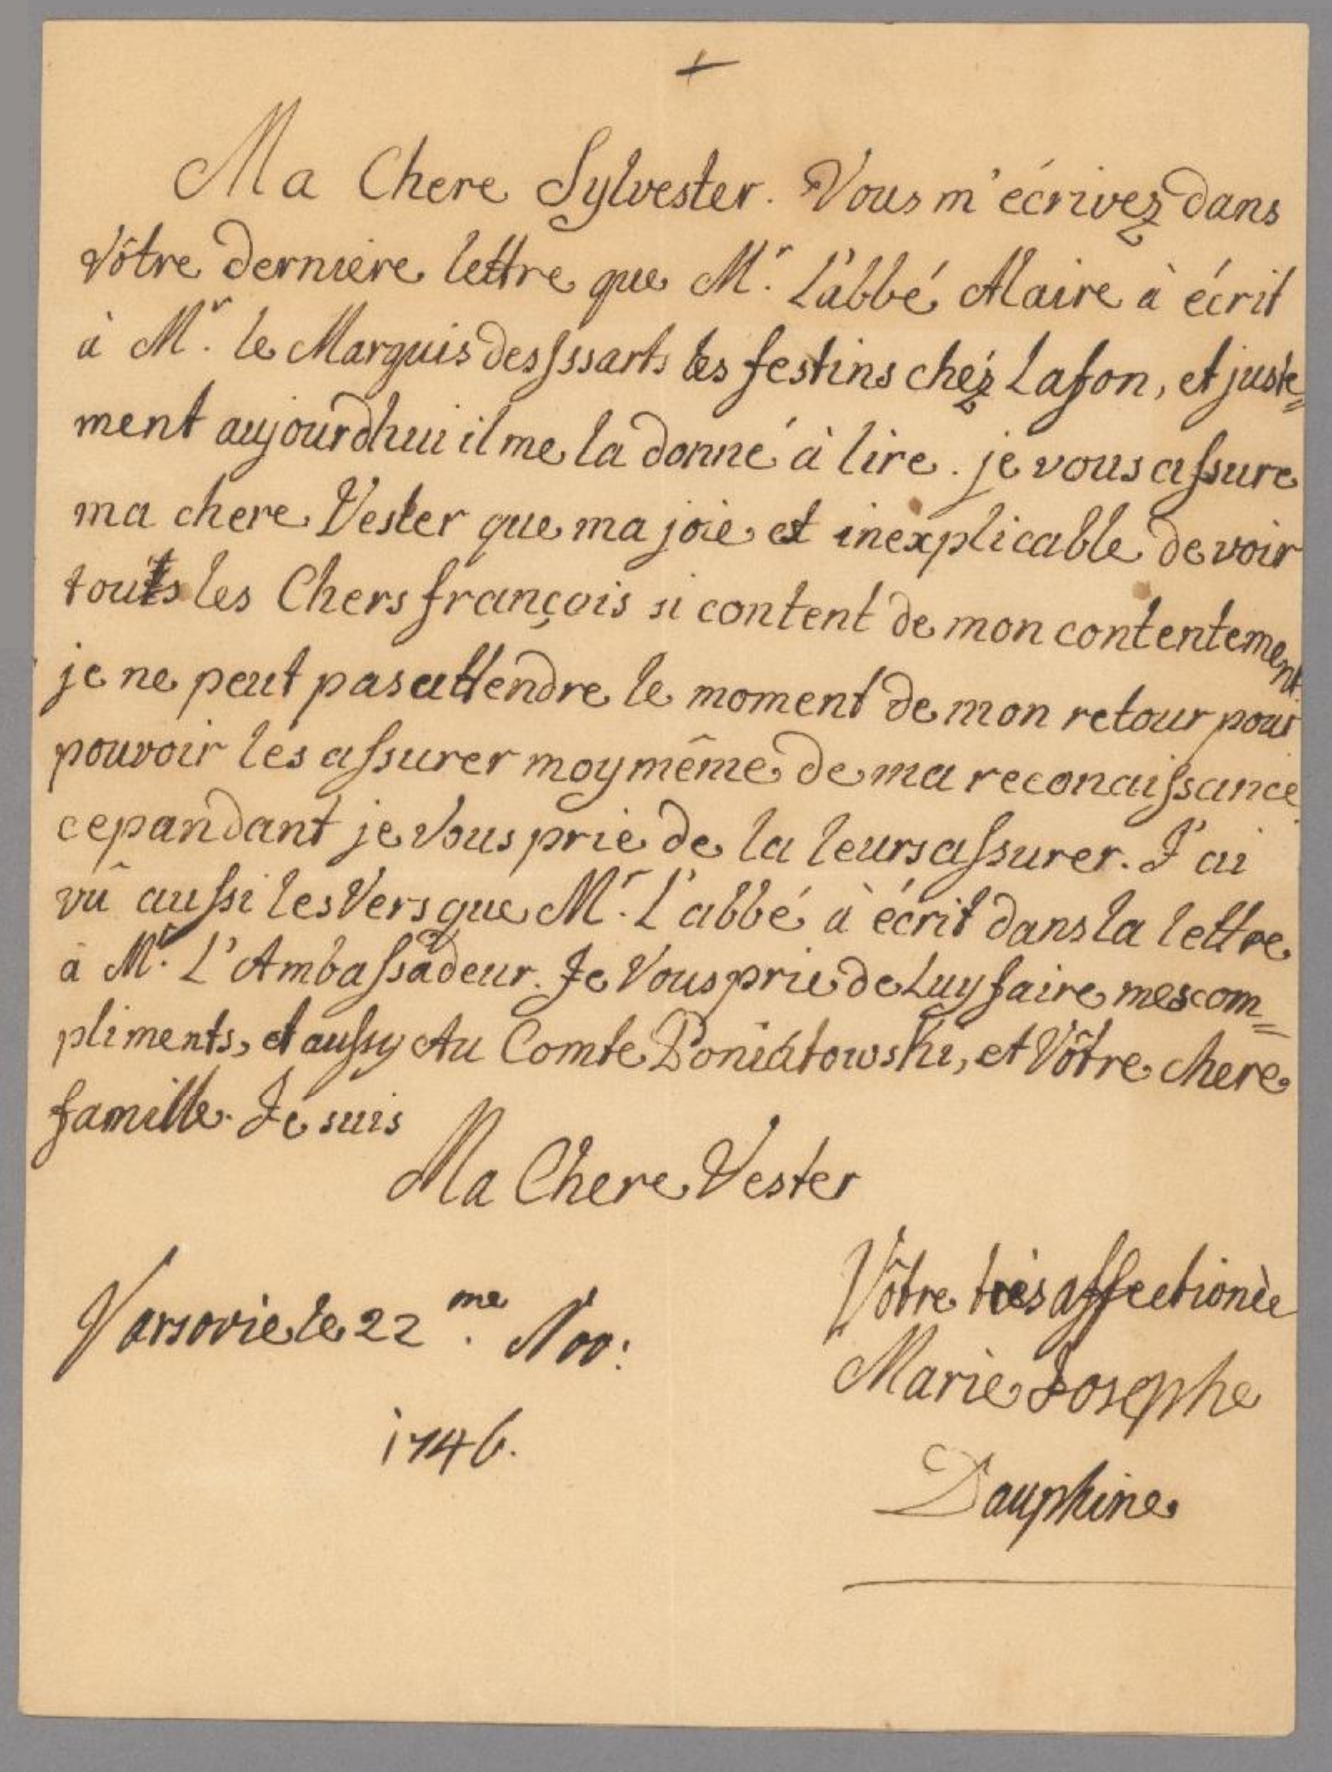 +
Ma Chere Sylvester. Vous m'écrivez dans
Vôtre derniere lettre que Mr. L'abbé Alaire à écrit
à Mr. le Marquis des Issarts les festins chéz Lafon, et juste=
ment aujourdhui il me la donné à lire. je vous assure
ma chere Vester que ma joie et inexplicable de voir
touts les Chers françois si content de mon contentement
je ne peut pas attendre le moment de mon retour pour
pouvoir les assurer moy même de ma reconaissance
cepandant je Vous prie de la leurs assurer. J'ai
vû aussi les Vers que Mr. L'abbé à écrit dans la lettre
a Mr. L'Ambassadeur. Je Vous prie de Luy faire mes com=
pliments, et aussy Au Comte Poniatowski, et Vôtre chere
famille. Je suis
Ma Chere Vester
Vôtre tres affectionèe
Varsovie le 22me. Nov:
Marie Josephe
1746.
Dauphine